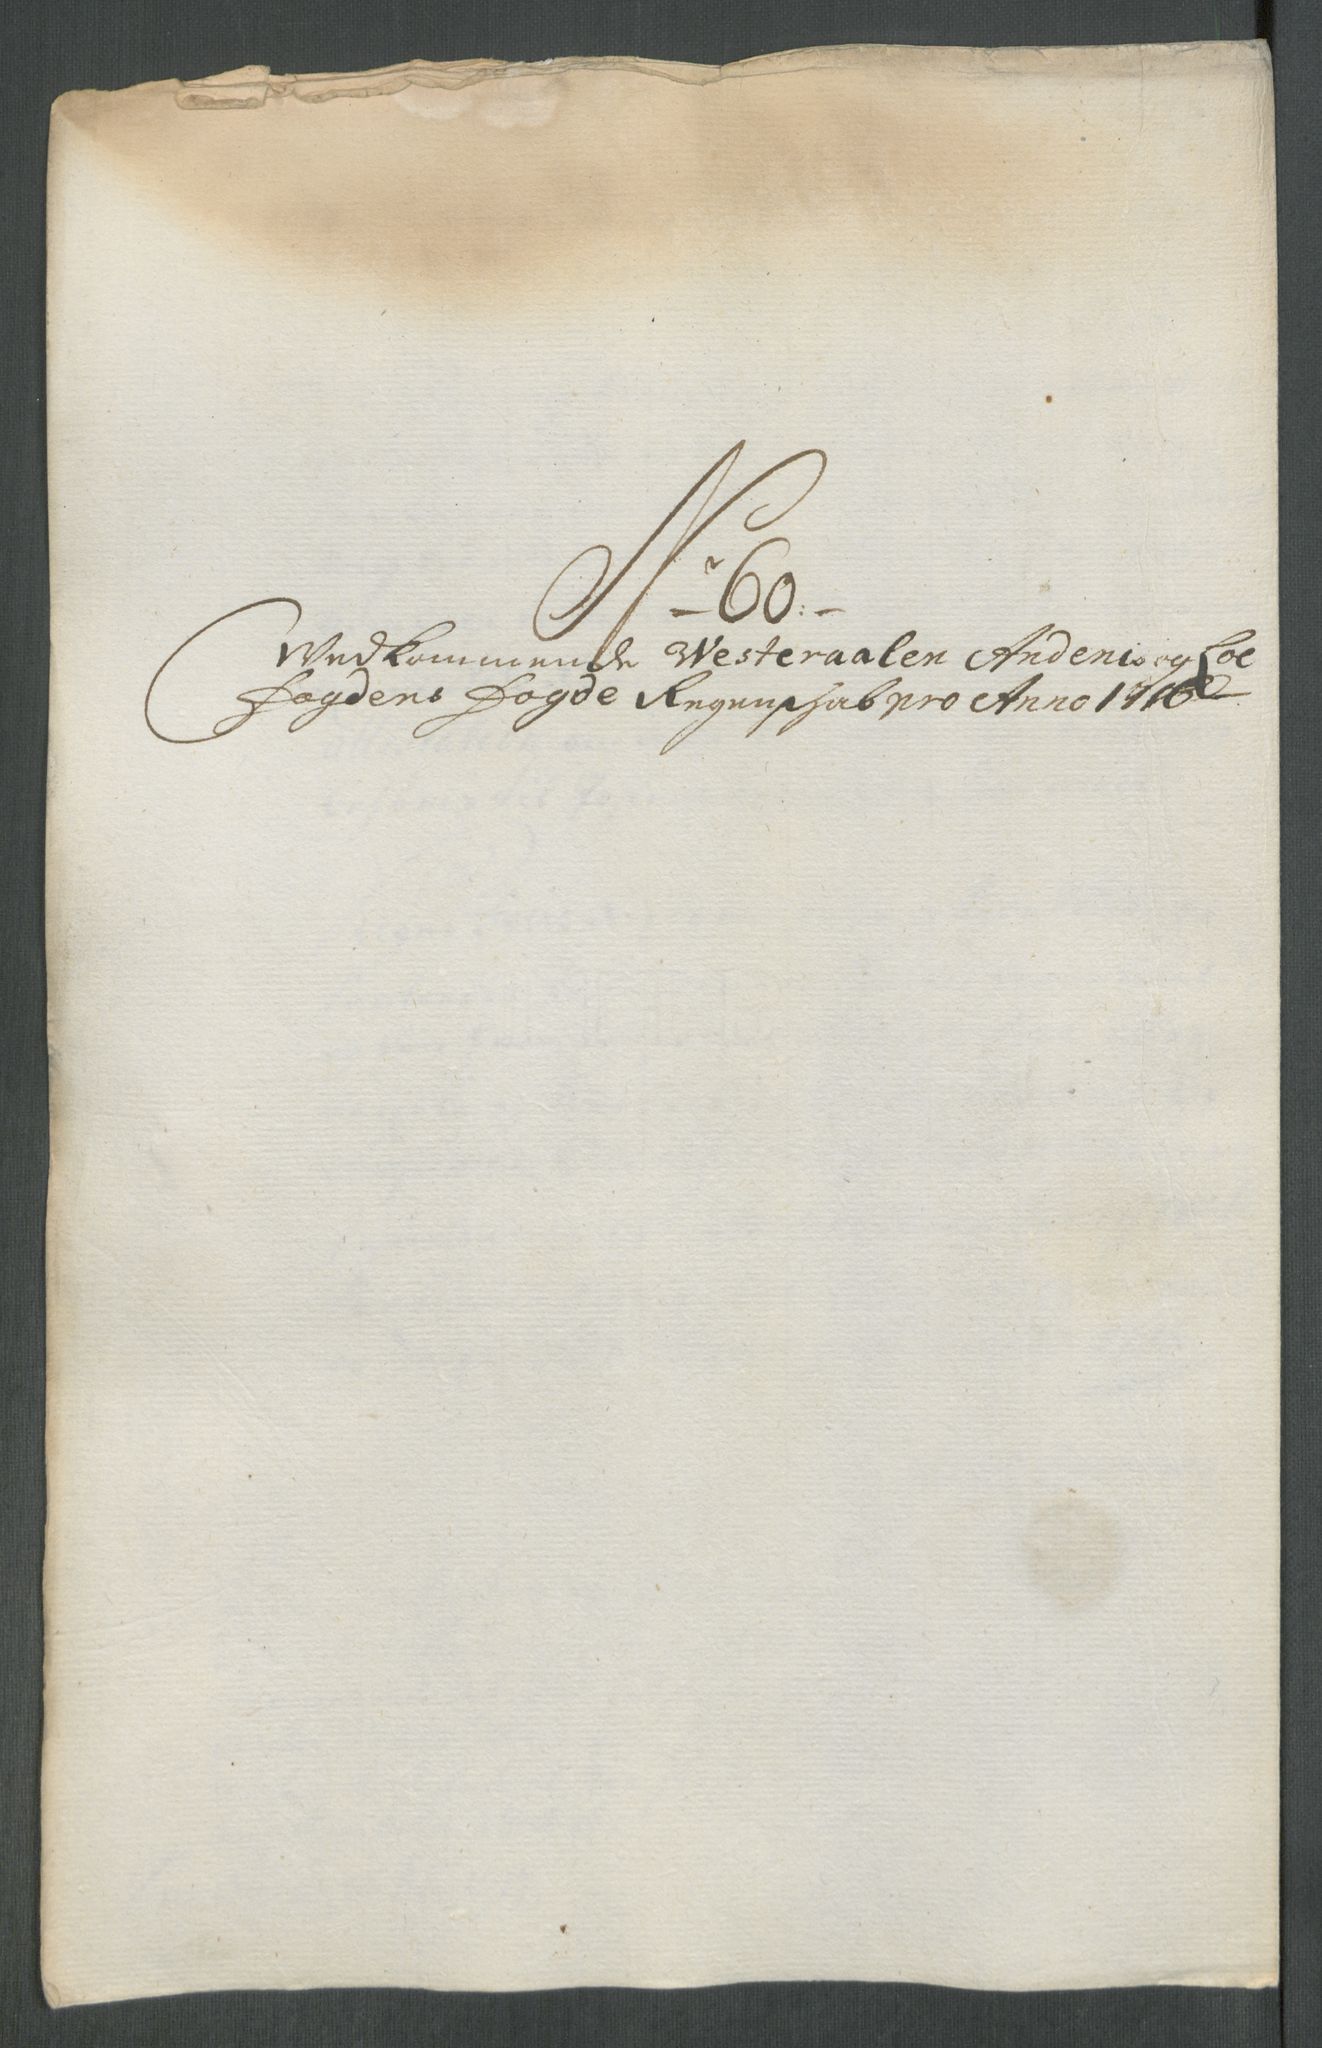 No 60:
Wedkommende Westeraalen Andenis og Loe
fogdens fogde Regenshab pro Anno 1716